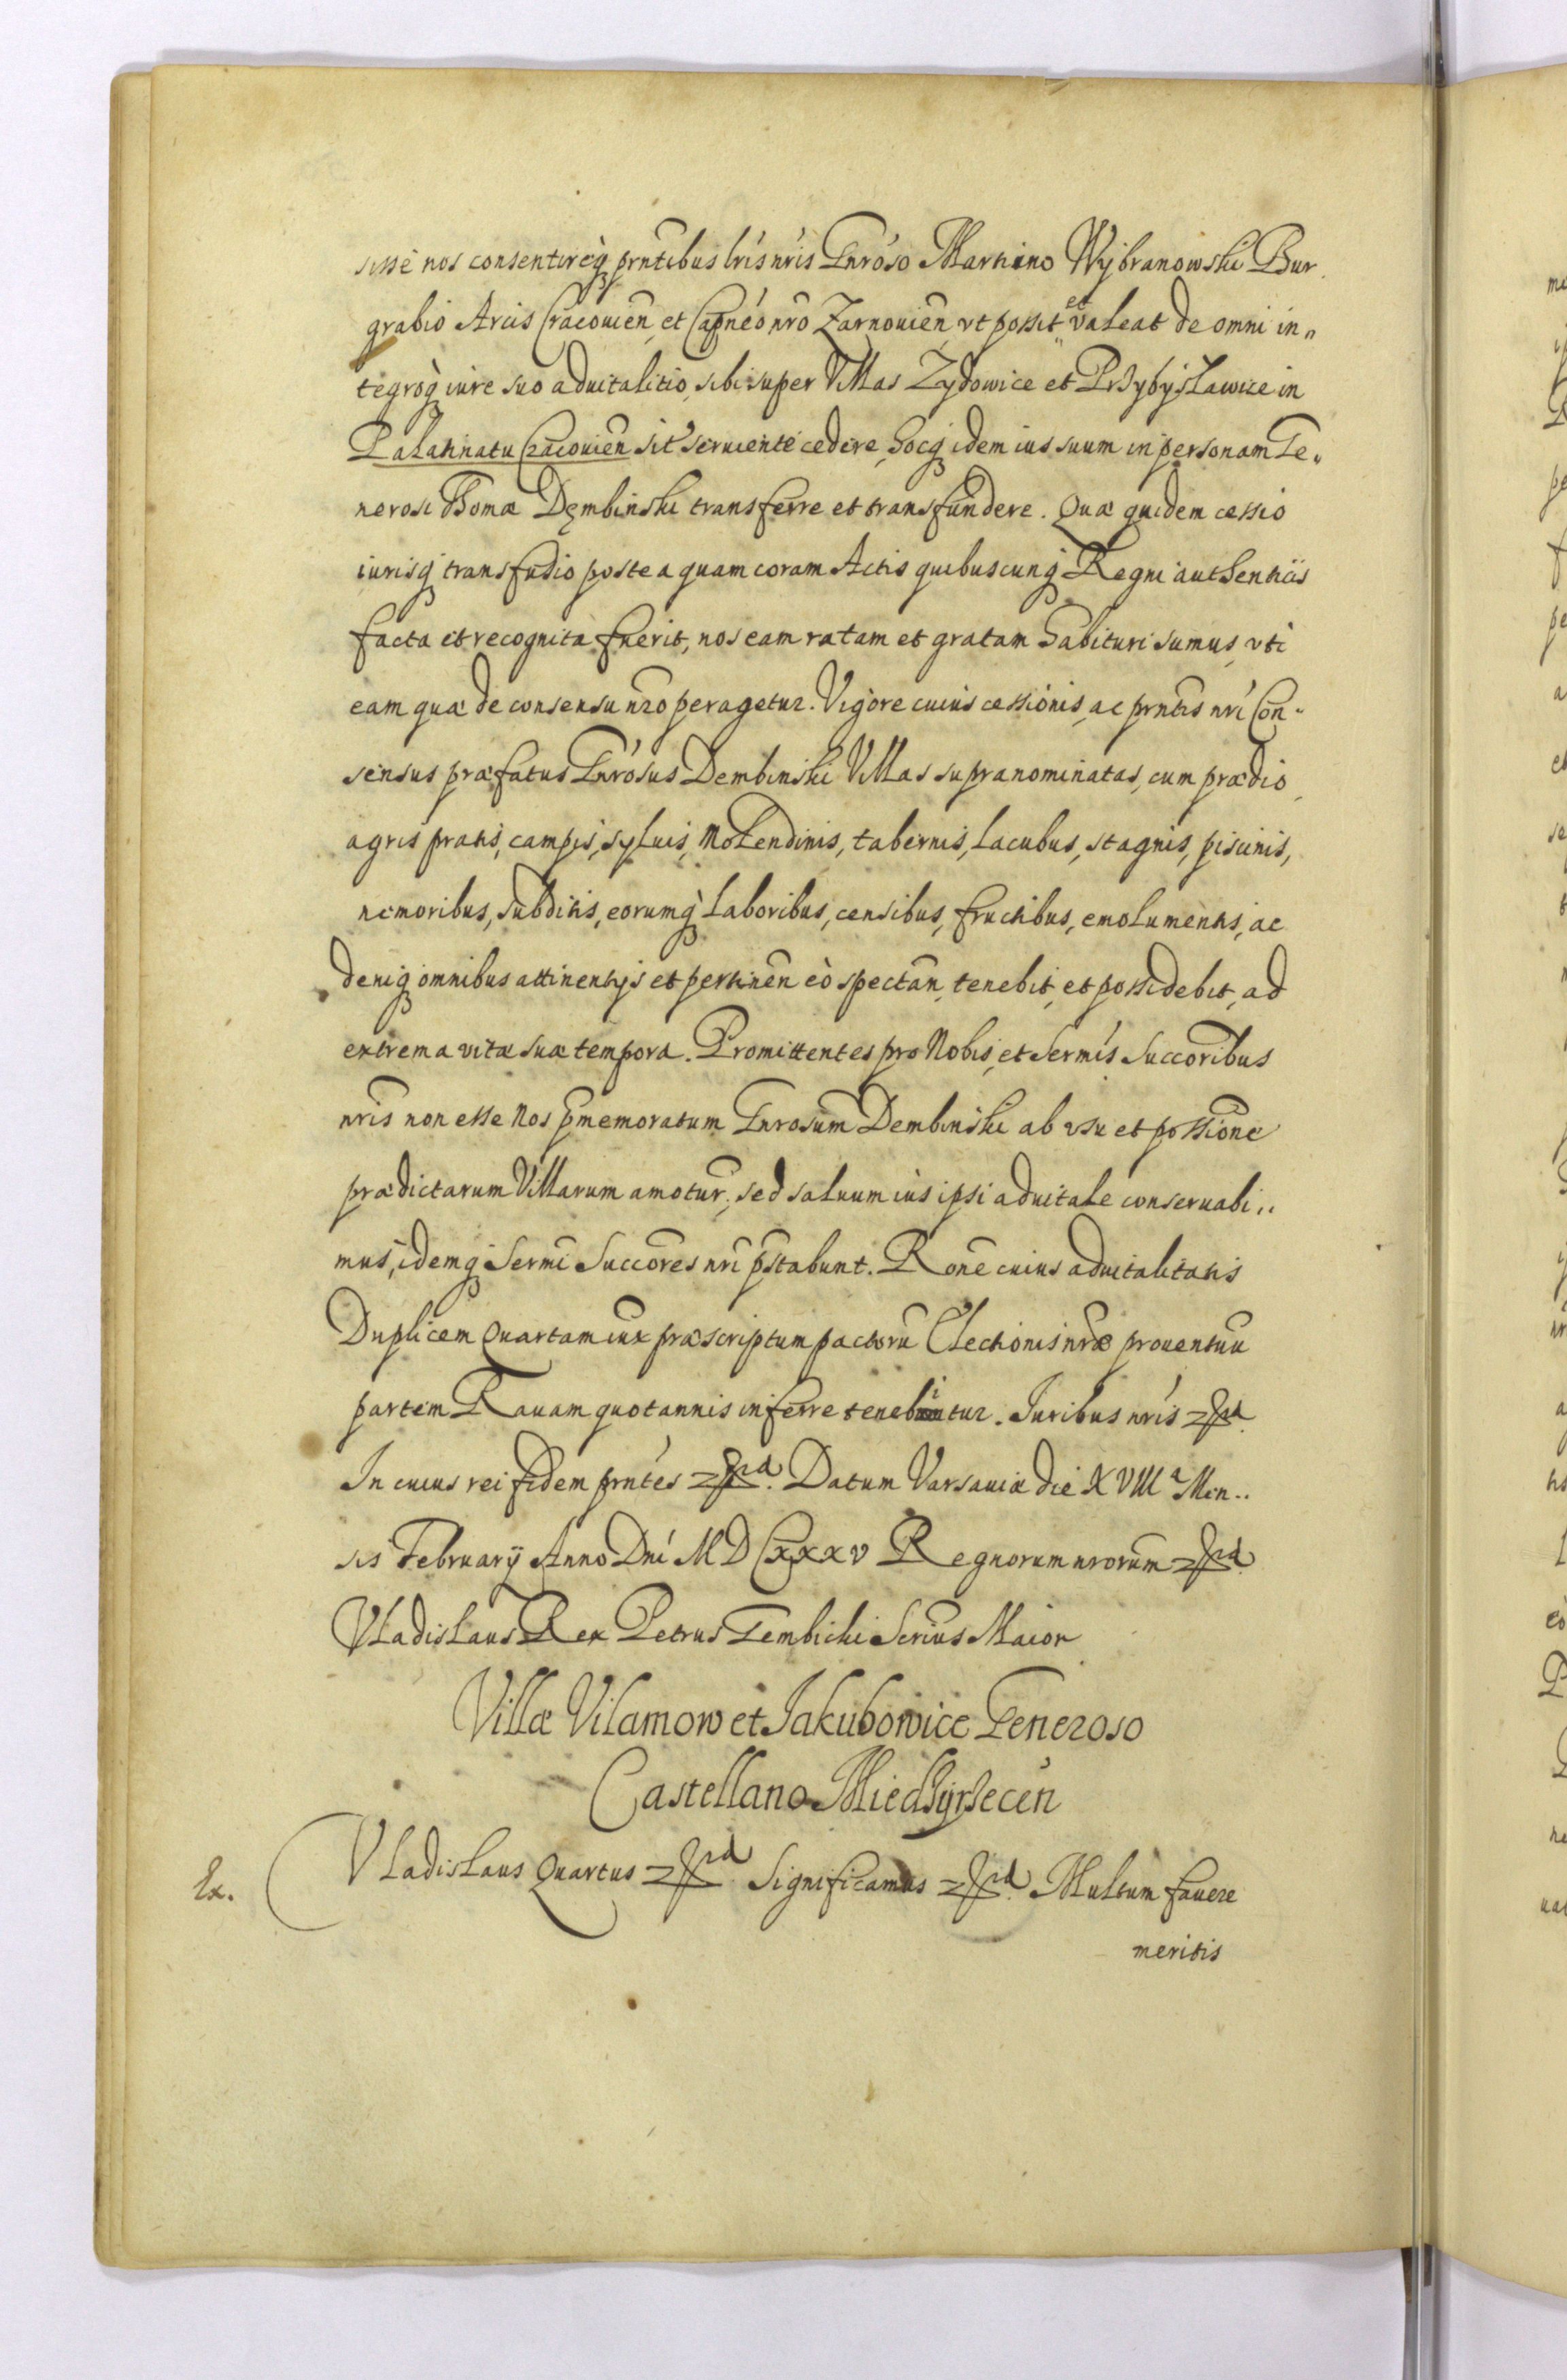 sisse nos consentireq prntibus lris nris Gnroso Martino Wybranowski Bur
grabio Arcis Cracouien et Capneo nro Zarnouien vt possit et valeat de omni in„
tegroq iure suo aduitalitio, sibi super Villas Zydowice et Przybysławice in
Palatinatu Cracouien sit seruiente cedere, hocq idem ius suum in personam Ge„
nerosi Thomæ Dembinski transferre et transfundere. Quæ quidem cessio
iurisq transfusio postea quam coram Actis quibuscunq Regni authenticis
facta et recognita fuerit, nos eam ratam et gratam habituri sumus, vti
eam quæ de consensu nro peragetur. Vigore cuius cessionis, ac prntis nri Con„
sensus præfatus Gnrosus Dembinski Villas supranominatas, cum prædio
agris pratis, campis, syluis, Molendinis, tabernis, Lacubus, stagnis, piscinis,
nemoribus, subditis, eorumq Laboribus, censibus, fructibus, emolumentis, ac
deniq omnibus attinentijs et pertinen eò spectan, tenebit, et possidebit, ad
extrema vitæ suæ tempora. Promittentes pro Nobis, et Sermis Succoribus
nris non esse Nos pmemoratum Gnrosum Dembinski ab vsu et possione
prædictarum Villarum amotur, sed saluum ius ipsi aduitale conseruabi„
mus, idemq Sermi Succores nri pstabunt. Rone cuius aduitalitatis
Duplicem Quartam iux præscriptum pactoru Electionis nræ prouentuu
partem Rauam quotannis inferre tenebitur. Iuribus nris
In cuius rei fidem prntes Datum Varsauiæ die XVIII a Men„
sis February Anno Dni MDCXXXV Regnorum nrorum
Vladislaus Rex Petrus Gembicki Scrius Maior
Villæ Vilamow et Jakubowice Generoso
Castellano Miedzyrzecen
Ex. Vladislaus Quartus Significamus Multum fauere
meritis